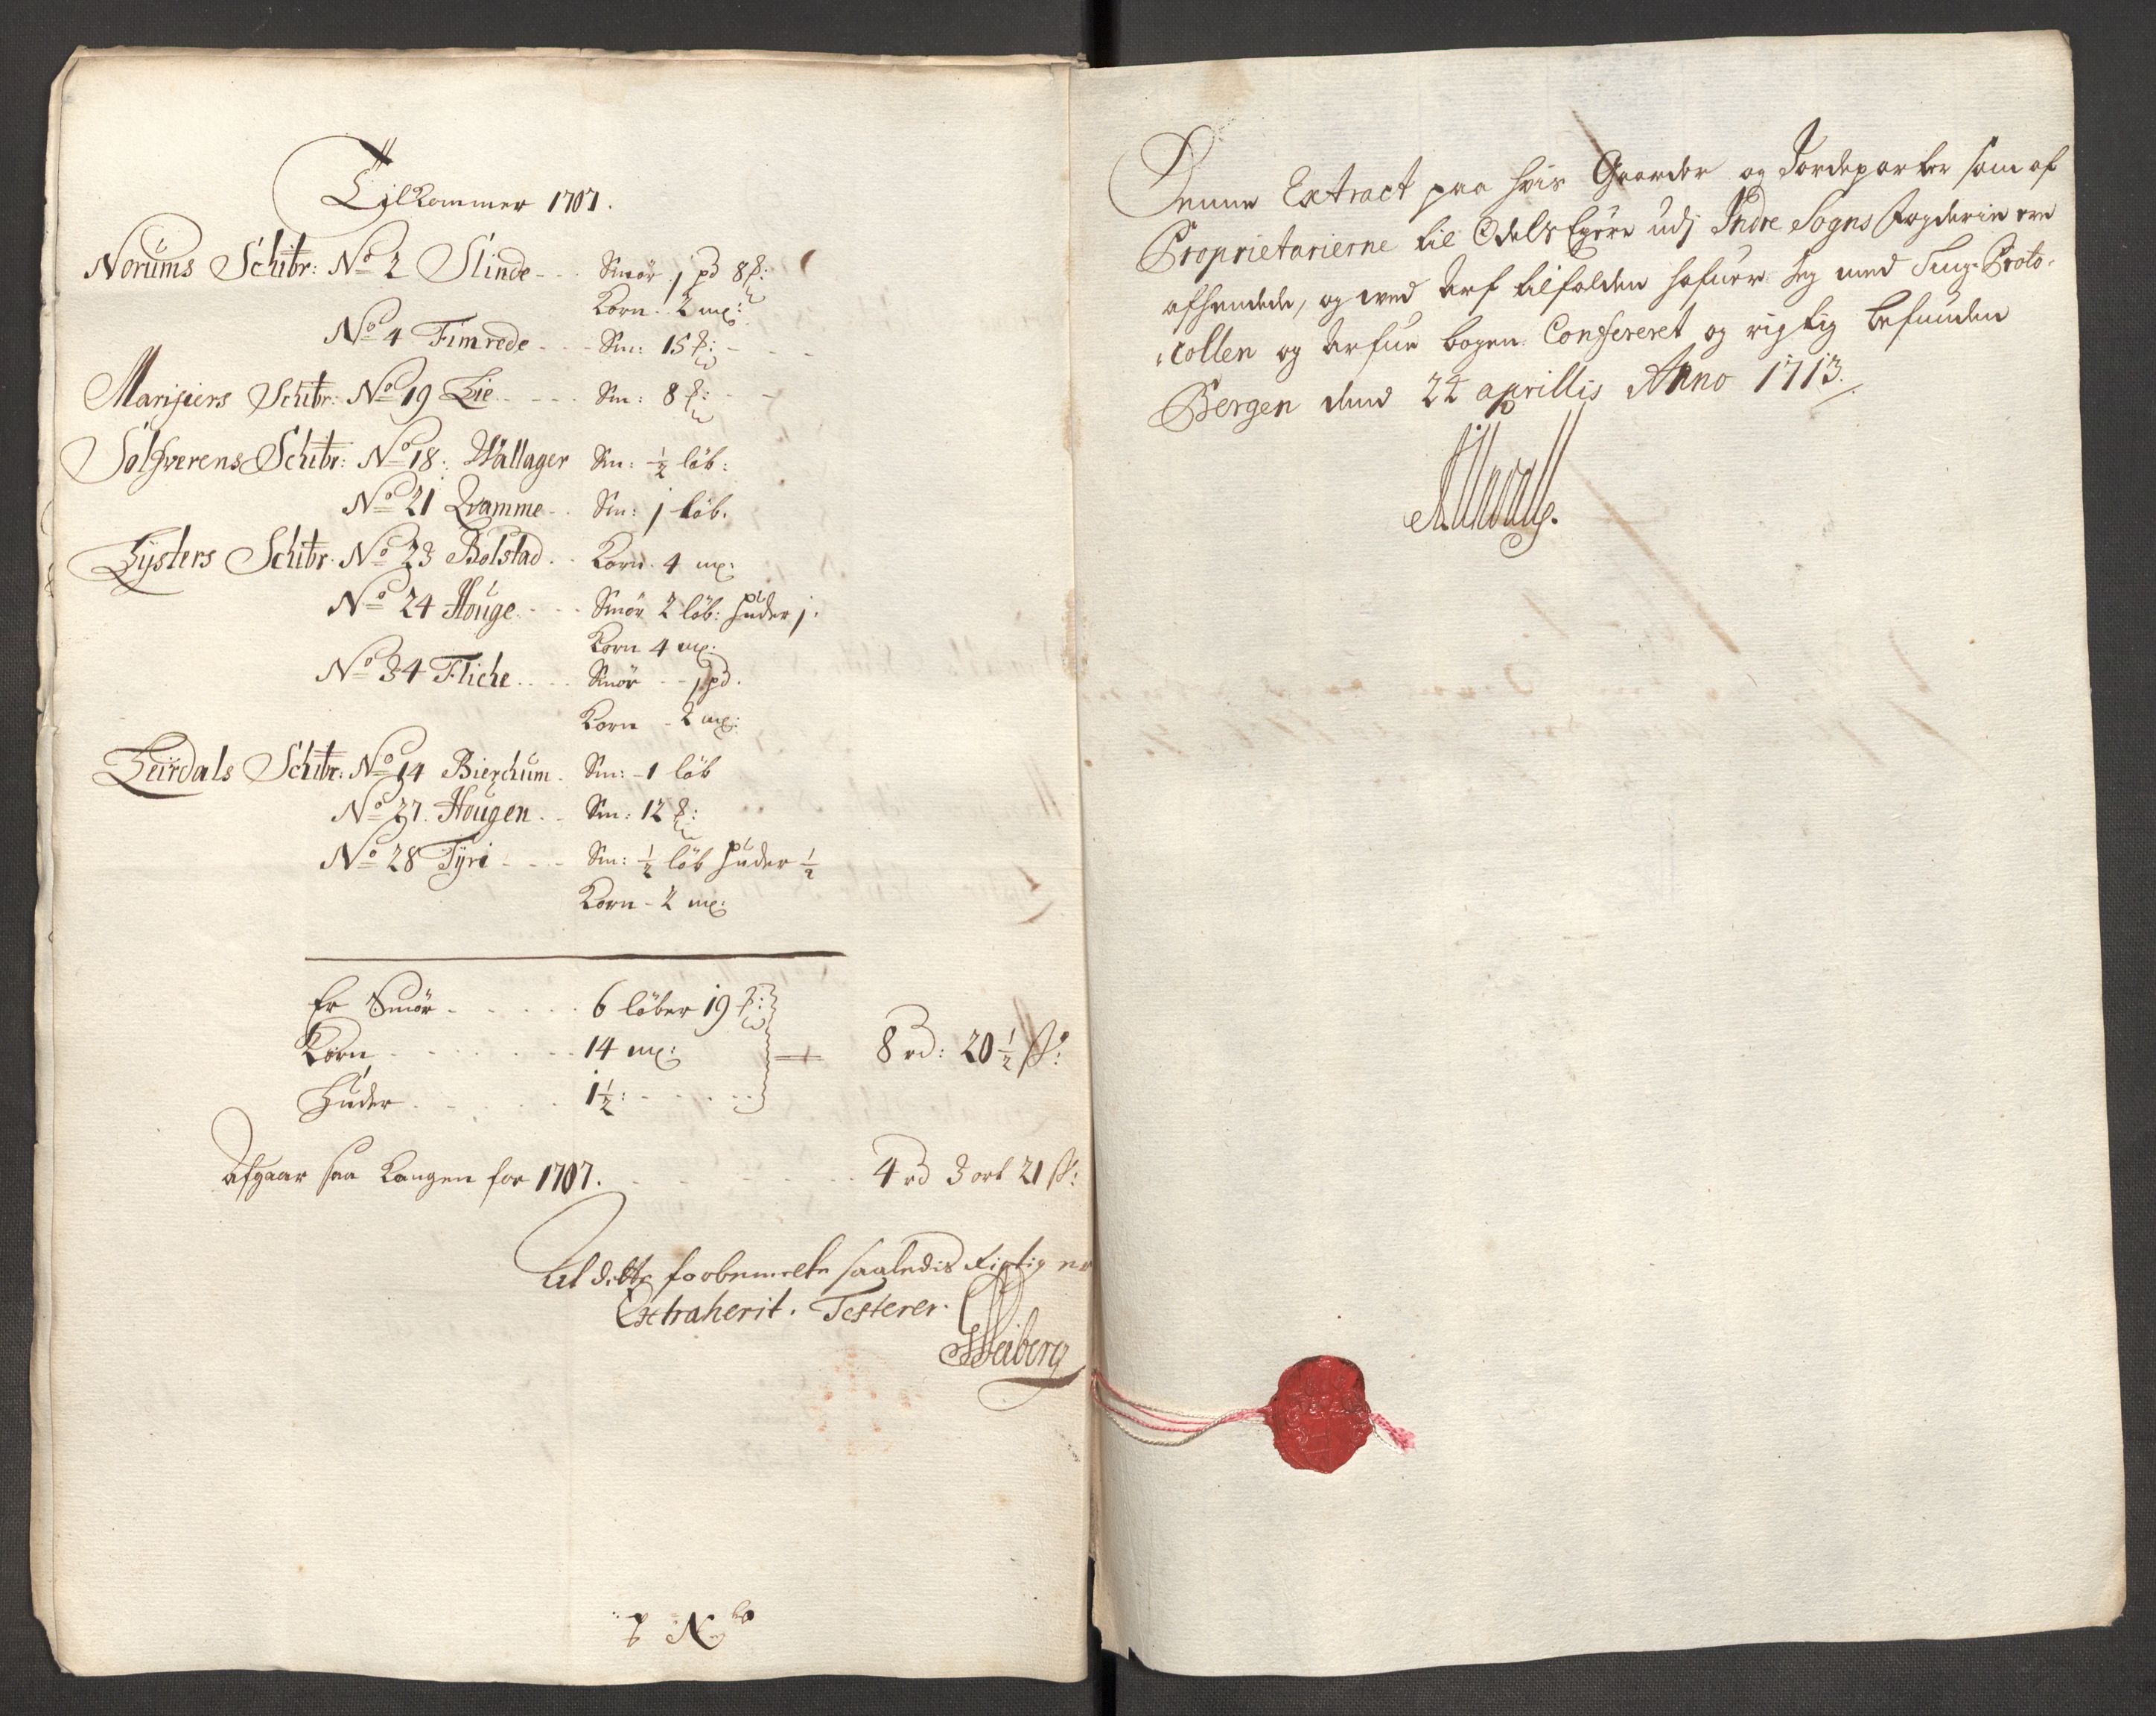 Tilkommer 1707.
Norums Schibr: No 2 Slinde - - - Smör 1 pd 8 ℔:
Korn 2 mæ:
No 4 Fimrede - - - Sm: 15 ℔: - - -
Marifiers Schibr: No 19 Lie - - - - Sm: 8 ℔: - -
Solfverens Schibr: No 18: Wallager Sm: ½ löb:
No 21 Qvamme - - Sm: 1 löb.
Lysters Schibr No 23 Bolstad - - Korn 4 mæ:
No 24 Houge - - - Smör 2 löb: huder 1.
Korn 4 mæ:
No 34 Fliche - - - - Smör - - 1 pd.
Korn - 2 mæ:
Leirdals Schibr: No 14 Bierchum - Sm: - 1 löb
No 27. Hougen - - Sm: 12 ℔:
No 28 Tyri - - - - Sm: ½ löb huder ½
Korn - 2 mæ:
Er Smör - - - - - 6 löber 19 ℔:
Korn - - - - - - - 14 mæ: 8 rd: 20½ ß:
Huder - - - - - - 1½: - - - - -
Afgaar saa Langen for 1707. - - - - - - - 4 rd 3 ort 21 ß:
At dette forbemelte saaledis Rigtig er
Extraherit. Testerer.
Heiberg
No 7
Denne Extract paa hvis Gaarder og Jordeparter som af
Proprietarierne til Odels Eyere udj Indre Sogns Fogderie ere
afhendede, og ved Arf tilfalden hafuer Jeg med Ting-Proto-
collen og Arfue bogen Confereret og rigtig befunden
Bergen dend 22 aprillis Anno 1713.